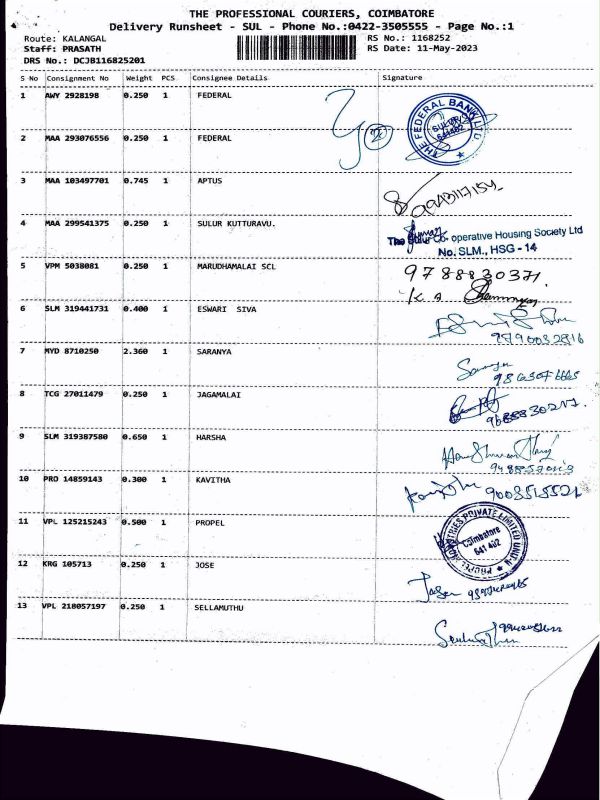 THE PROFESSIONAL COURIERS, COIMBATORE
Delivery Runsheet - SUL - Phone No.:0422-3505555 - Page No.:1
Route: KALANGAL RS No.: 1168252
Staff: PRASATH RS Date: 11-May-2023
DRS No.: DCJB116825201
S No Consignment No Weight PCS Consignee Details Signature
1 AWY 2928198 0.250 1 FEDERAL
THE FEDERAL BANK LTD.
SULUR
641402
2 MAA 293076556 0.250 1 FEDERAL
2
3 MAA 103497701 0.745 1 APTUS
4 MAA 299541375 0.250 1 SULUR KUTTURAVU.
The Sulur Co- operative Housing Society Ltd
No. SLM., HSG - 14
5 VPM 5038081 0.250 1 MARUDHAMALAI SCL
9788830371.
K. A.
6 SLM 319441731 0.400 1 ESWARI SIVA
7 MYD 8710250 2.360 1 SARANYA
8 TCG 27011479 0.250 1 JAGAMALAI
9 SLM 319387580 0.650 1 HARSHA
10 PRO 14859143 0.300 1 KAVITHA
9008518521
11 VPL 125215243 0.500 1 PROPEL
PROPEL INDUSTRIES PRIVATE LIMITED
Coimbatore
641 402
12 KRG 105713 0.250 1 JOSE
13 VPL 218057197 0.250 1 SELLAMUTHU